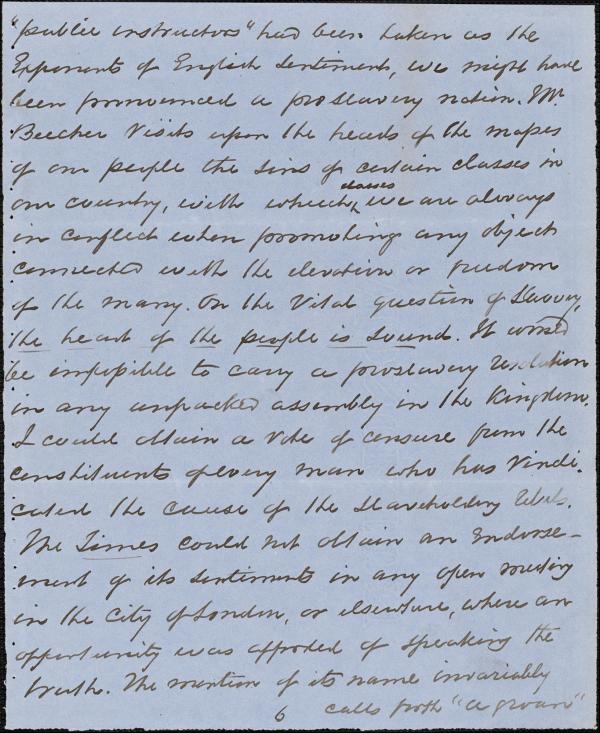 "public instructors" had been taken as the
Exponents of English Sentiments, we might have
been pronounced a proslavery nation. Mr.
Beecher Visits upon the heads of the masses
of our people the sins of certain classes in
our country, with which classes we are always
in conflict when promoting any object
connected with the elevation or freedom
of the many. On the Vital question of Slavery,
the heart of the people is sound. It would
be impossible to carry a proslavery resolution
in any unpacked assembly in the Kingdom.
I could obtain a vote of censure from the
constituents of every man who has Vindi-
cated the cause of the slaveholding rebels.
The Times could not obtain an Endorse-
ment of its sentiments in any open meeting
in the City of London, or elsewhere, where an
opportunity was afforded of speaking the
truth. The mention of its name invariably
calls forth "a groan"
6